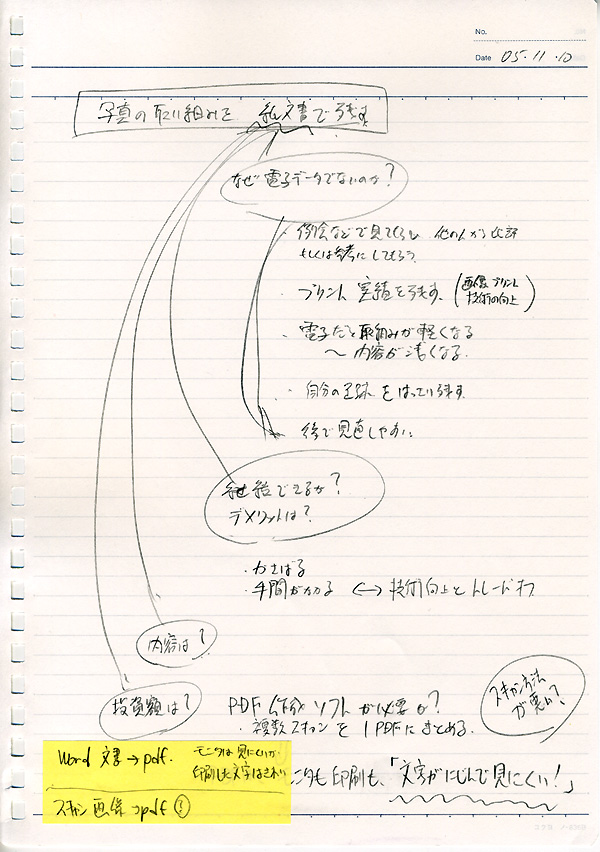 No.
Date 05.11.10
写真の取り組みを 紙文書で残す
なぜ電子データでないのか?
・例会などで見てもらい 他の人から批評
もしくは参考にしてもらう
・プリント 実績を残す。(画像プリント
技術の向上)
・電子だと取組みが軽くなる
〜内容が浅くなる。
・自分の足跡をはっきり残す
・後で見直しやすい
継続できるか?
デメリットは?
・かさばる
・手間がかかる ⟷ 技術向上とトレードオフ
内容は?
投資額は?
PDF 作成ソフトが必要か?
・複数スキャンを1PDFにまとめる。
スキャン方法
が悪い?
Word 文書→pdf.
モニタは見にくいが、
印刷した文字はきれい
スキャン画像→pdf
ニタも印刷も、「文字がにじんで見にくい!」